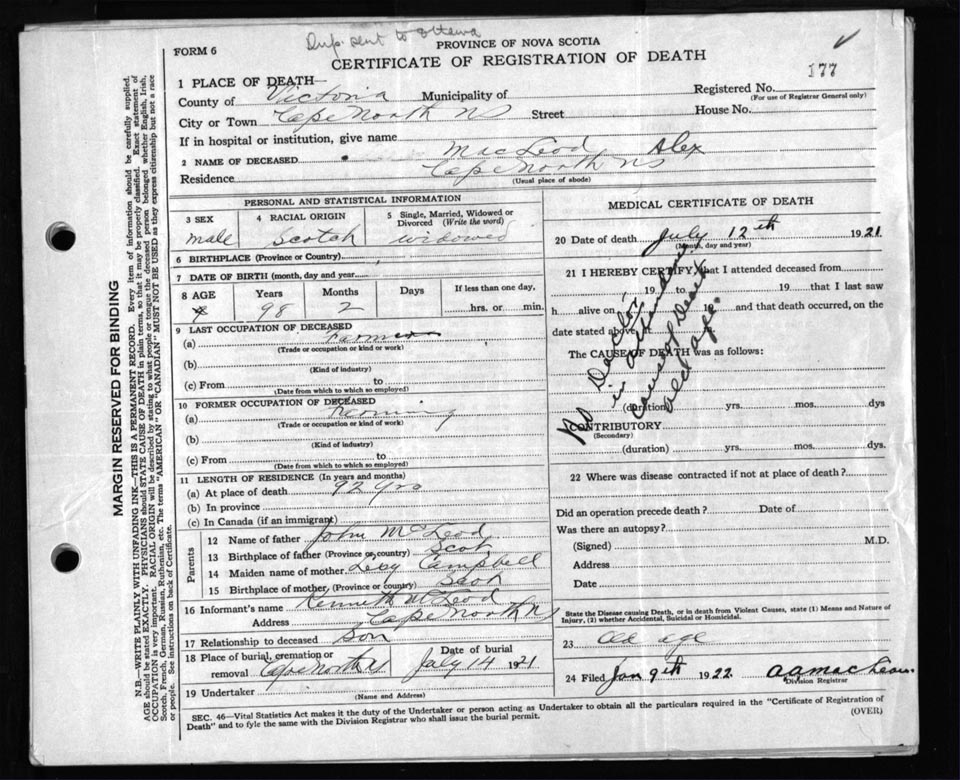 Dup. sent to Ottawa
FORM 6
PROVINCE OF NOVA SCOTIA
CERTIFICATE OF REGISTRATION OF DEATH
177
1 PLACE OF DEATH—
County of Victoria Municipality of
Registered No.
(For use of Registrar General only)
City or Town Cape North NS Street House No.
If in hospital or institution, give name
2 NAME OF DECEASED MacLeod Alex
Residence Cape North NS
(Usual place of abode)
MARGIN RESERVED FOR BINDING
N.B.—WRITE PLAINLY WITH UNFADING INK—THIS IS A PERMANENT RECORD. Every item of information should be carefully supplied.
AGE should be stated EXACTLY. PHYSICIANS should STATE CAUSE OF DEATH in plain terms, so that it may be properly classified. Exact statement of
OCCUPATION is very important. RACIAL ORIGIN will be described by stating to what people or tongue the deceased person belonged whether English, Irish,
Scotch, French, German, Russian, Ruthenian, etc. The terms "AMERICAN" OR "CANADIAN" MUST NOT BE USED as they express citizenship but not a race
or people. See instructions on back of Certificate.
PERSONAL AND STATISTICAL INFORMATION
3 SEX
male
4 RACIAL ORIGIN
Scotch
5 Single, Married, Widowed or
Divorced (Write the word)
widowed
6 BIRTHPLACE (Province or Country)
7 DATE OF BIRTH (month, day and year)
8 AGE Years Months Days If less than one day,
98 2 hrs. or min.
9 LAST OCCUPATION OF DECEASED
(a)
(Trade or occupation or kind or work)
(b)
(Kind of industry)
(c) From to
(Date from which to which so employed)
10 FORMER OCCUPATION OF DECEASED
(a) Farming
(Trade or occupation or kind of work)
(b)
(Kind of industry)
(c) From to
(Date from which to which so employed)
11 LENGTH OF RESIDENCE (In years and months)
(a) At place of death 92 yrs
(b) In province
(c) In Canada (if an immigrant)
Parents
12 Name of father John McLeod
13 Birthplace of father (Province or country) Scot
14 Maiden name of mother Campbell
15 Birthplace of mother (Province or country) Scot
16 Informant's name Kenneth McLeod
Address Cape North NS
17 Relationship to deceased Son
18 Place of burial, cremation or
removal Cape North NS
Date of burial
July 14 1921
19 Undertaker
(Name and Address)
MEDICAL CERTIFICATE OF DEATH
20 Date of death July 12th 1921
(Month, day and year)
21 I HEREBY CERTIFY, that I attended deceased from
19 to 19 that I last saw
h alive on 19 and that death occurred, on the
date stated above
The CAUSE OF DEATH was as follows:
No Doctor
in attendance
Cause of Death
old age
(duration) yrs. mos. dys
CONTRIBUTORY
(Secondary)
(duration) yrs. mos. dys.
22 Where was disease contracted if not at place of death?
Did an operation precede death? Date of
Was there an autopsy?
(Signed) M.D.
Address
Date
State the Disease causing Death, or in death from Violent Causes, state (1) Means and Nature of
Injury, (2) whether Accidental, Suicidal or Homicidal.
23 old age
24 Filed Jan 9th 1922 A A MacLean
Division Registrar
SEC. 46—Vital Statistics Act makes it the duty of the Undertaker or person acting as Undertaker to obtain all the particulars required in the "Certificate of Registration of
Death" and to fyle the same with the Division Registrar who shall issue the burial permit.
(OVER)